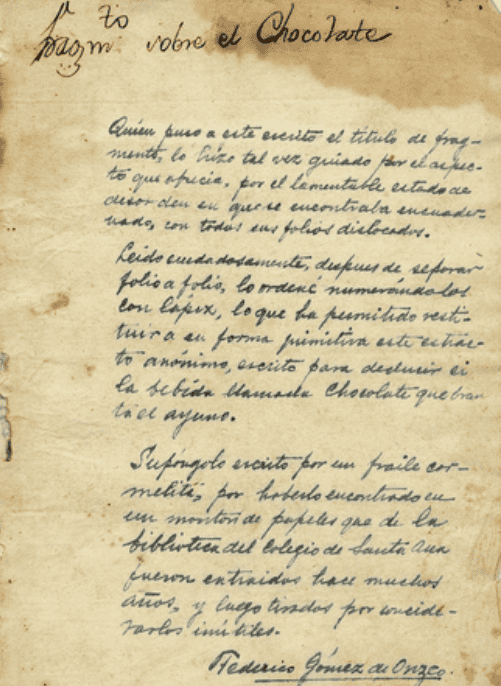 Fragmto sobre el Chocolate
Quien puso a este escrito el titulo de frag-
mento, lo hizo tal vez guiado por el aspec-
to que ofrecia, por el lamentable estado de
desorden en que se encontraba encuader-
nado, con todos sus folios dislocados.
Leido cuidadosamente, despues de separar
folio a folio, lo ordené numerándolos
con lápiz, lo que ha permitido resti-
tuir a su forma primitiva este
to anónimo, escrito para deducir si
la bebida llamada Chocolate quebran
ta el ayuno.
Supóngolo escrito por un fraile car-
melita, por haberlo encontrado en
un montón de papeles que de la
biblioteca del Colegio de Santa Ana
fueron extraidos hace muchos
años, y luego tirados por conside-
rarlos inútiles.
Federico Gómez de Orozco.